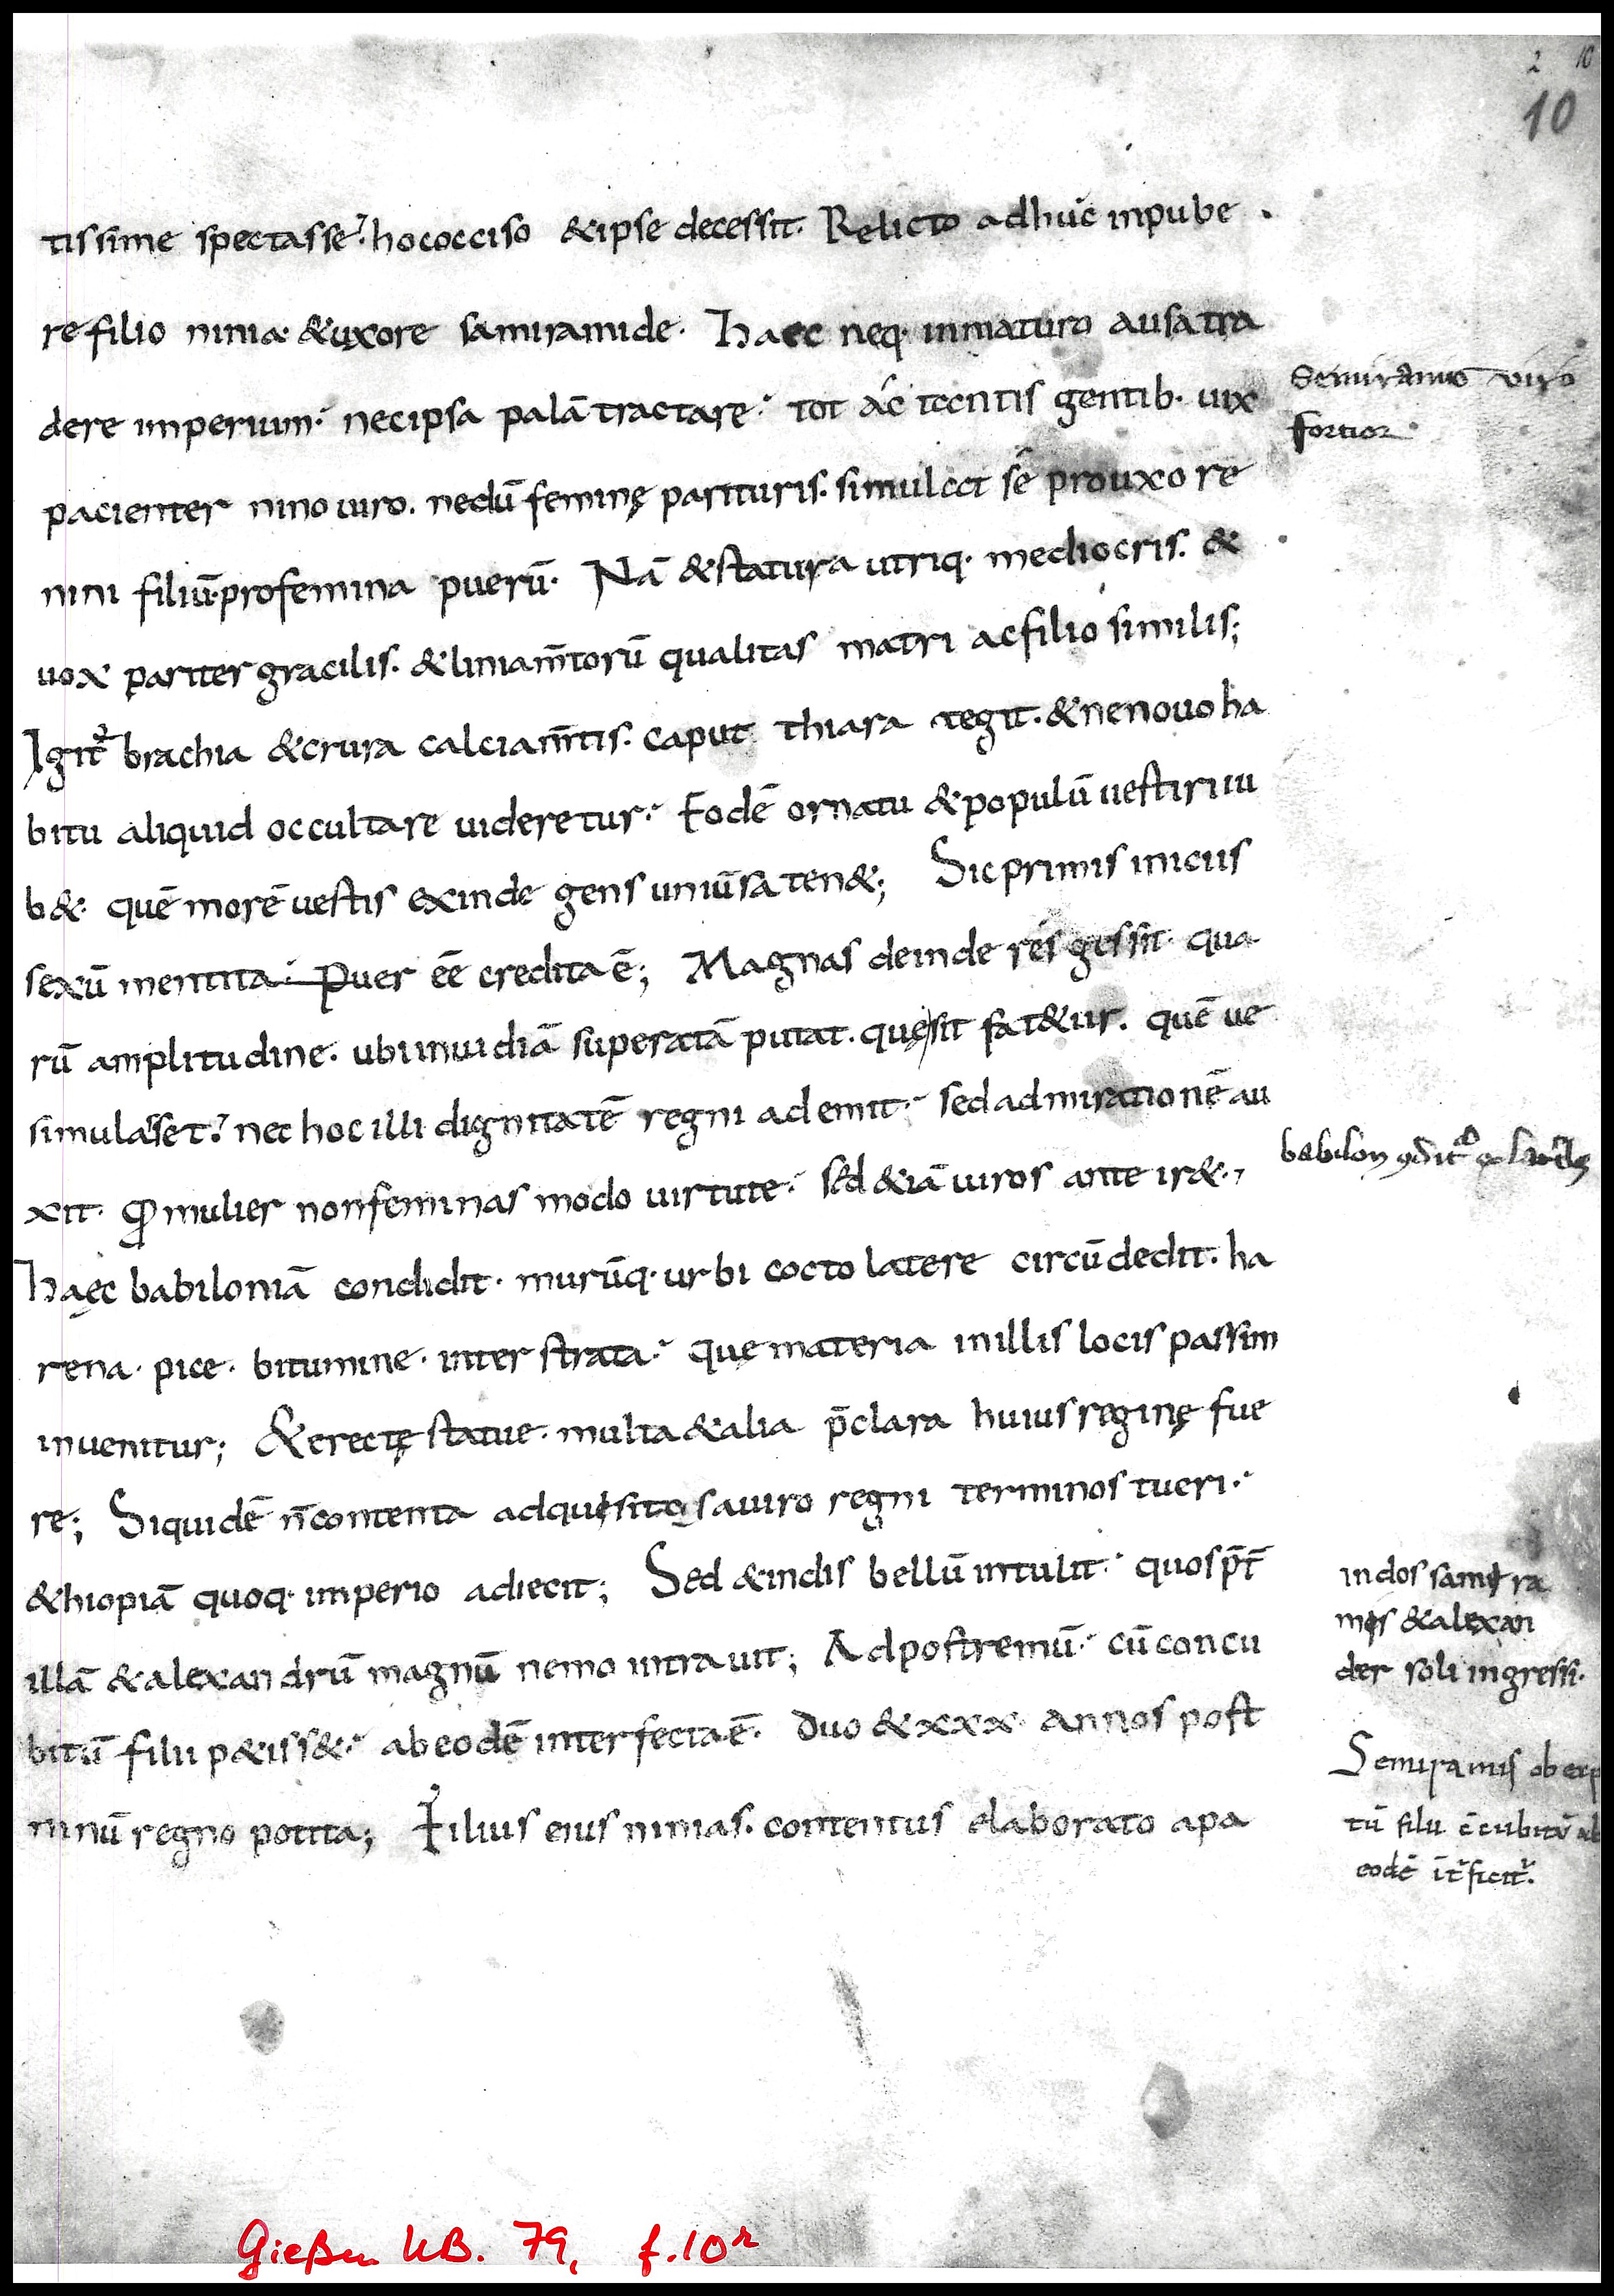 2 10
10
tissime spectasse. hococciso &ipse decessit. Relicto adhuc inpube
refilio ninia. &uxore samiramide. haec neq. inmaturo ausatra
dere imperium. necipsa palā tractare. tot ac tentis gentib. uix
Semiramis viro
fortior
pacienter nino uiro. nedū feminę parituris. simulat sē prouxore
nini filiū. profemina puerū. Nā &statura utriq. mediocris. &
uox pariter gracilis. &liniam̄torū qualitas matri acfilio similis;
Igit᷑ brachia &crura calciam̄tis. caput thiara tegit. &nenouoha
bitu aliquid occultare uideretur. Eodē ornatu &populū uestiriiu
b&. quē morē uestis exinde gens uniūsa ten&; Sicprimis iniciis
sexū mentita. Puer ēē credita ē; Magnas deinde res gessit. qua
rū amplitudine. ubiinuidiā superatā putat. quęsit fat&ur. quē ue
simulasset? nec hoc illi dignitatē regni ademit. sed admirationē au
babilon
xit. ꝙ mulier nonfeminas modo uirtute. sed &iā uiros anteir&.,
haec babiloniā condidit. murūq. urbi cocto latere circūdedit. ha
rena. pice. bitumine. interstrata. que materia inillis locis passim
inuenitur; &erectę statue. multa &alia p̄clara huius reginę fue
re; Siquidē n̄contenta adquisitos auiro regni terminos tueri.
&hiopiā quoq. imperio adiecit; Sed &indis bellū intulit. quosp̄t̄
indos samira
mis &alexan
der soli ingressi.
illā &alexandrū magnū nemo intrauit; Adpostremū. cū concu
bitū filii p&iss&. ab eodē interfecta ē. duo & xxx. annos post
Semiramis ob exp
tū filii c̄cubitū ab
eodē īt᷑ficit᷑.
ninū regno potita; Filius eius ninias. contentus elaborato apa
Gießen UB. 79, f.10r